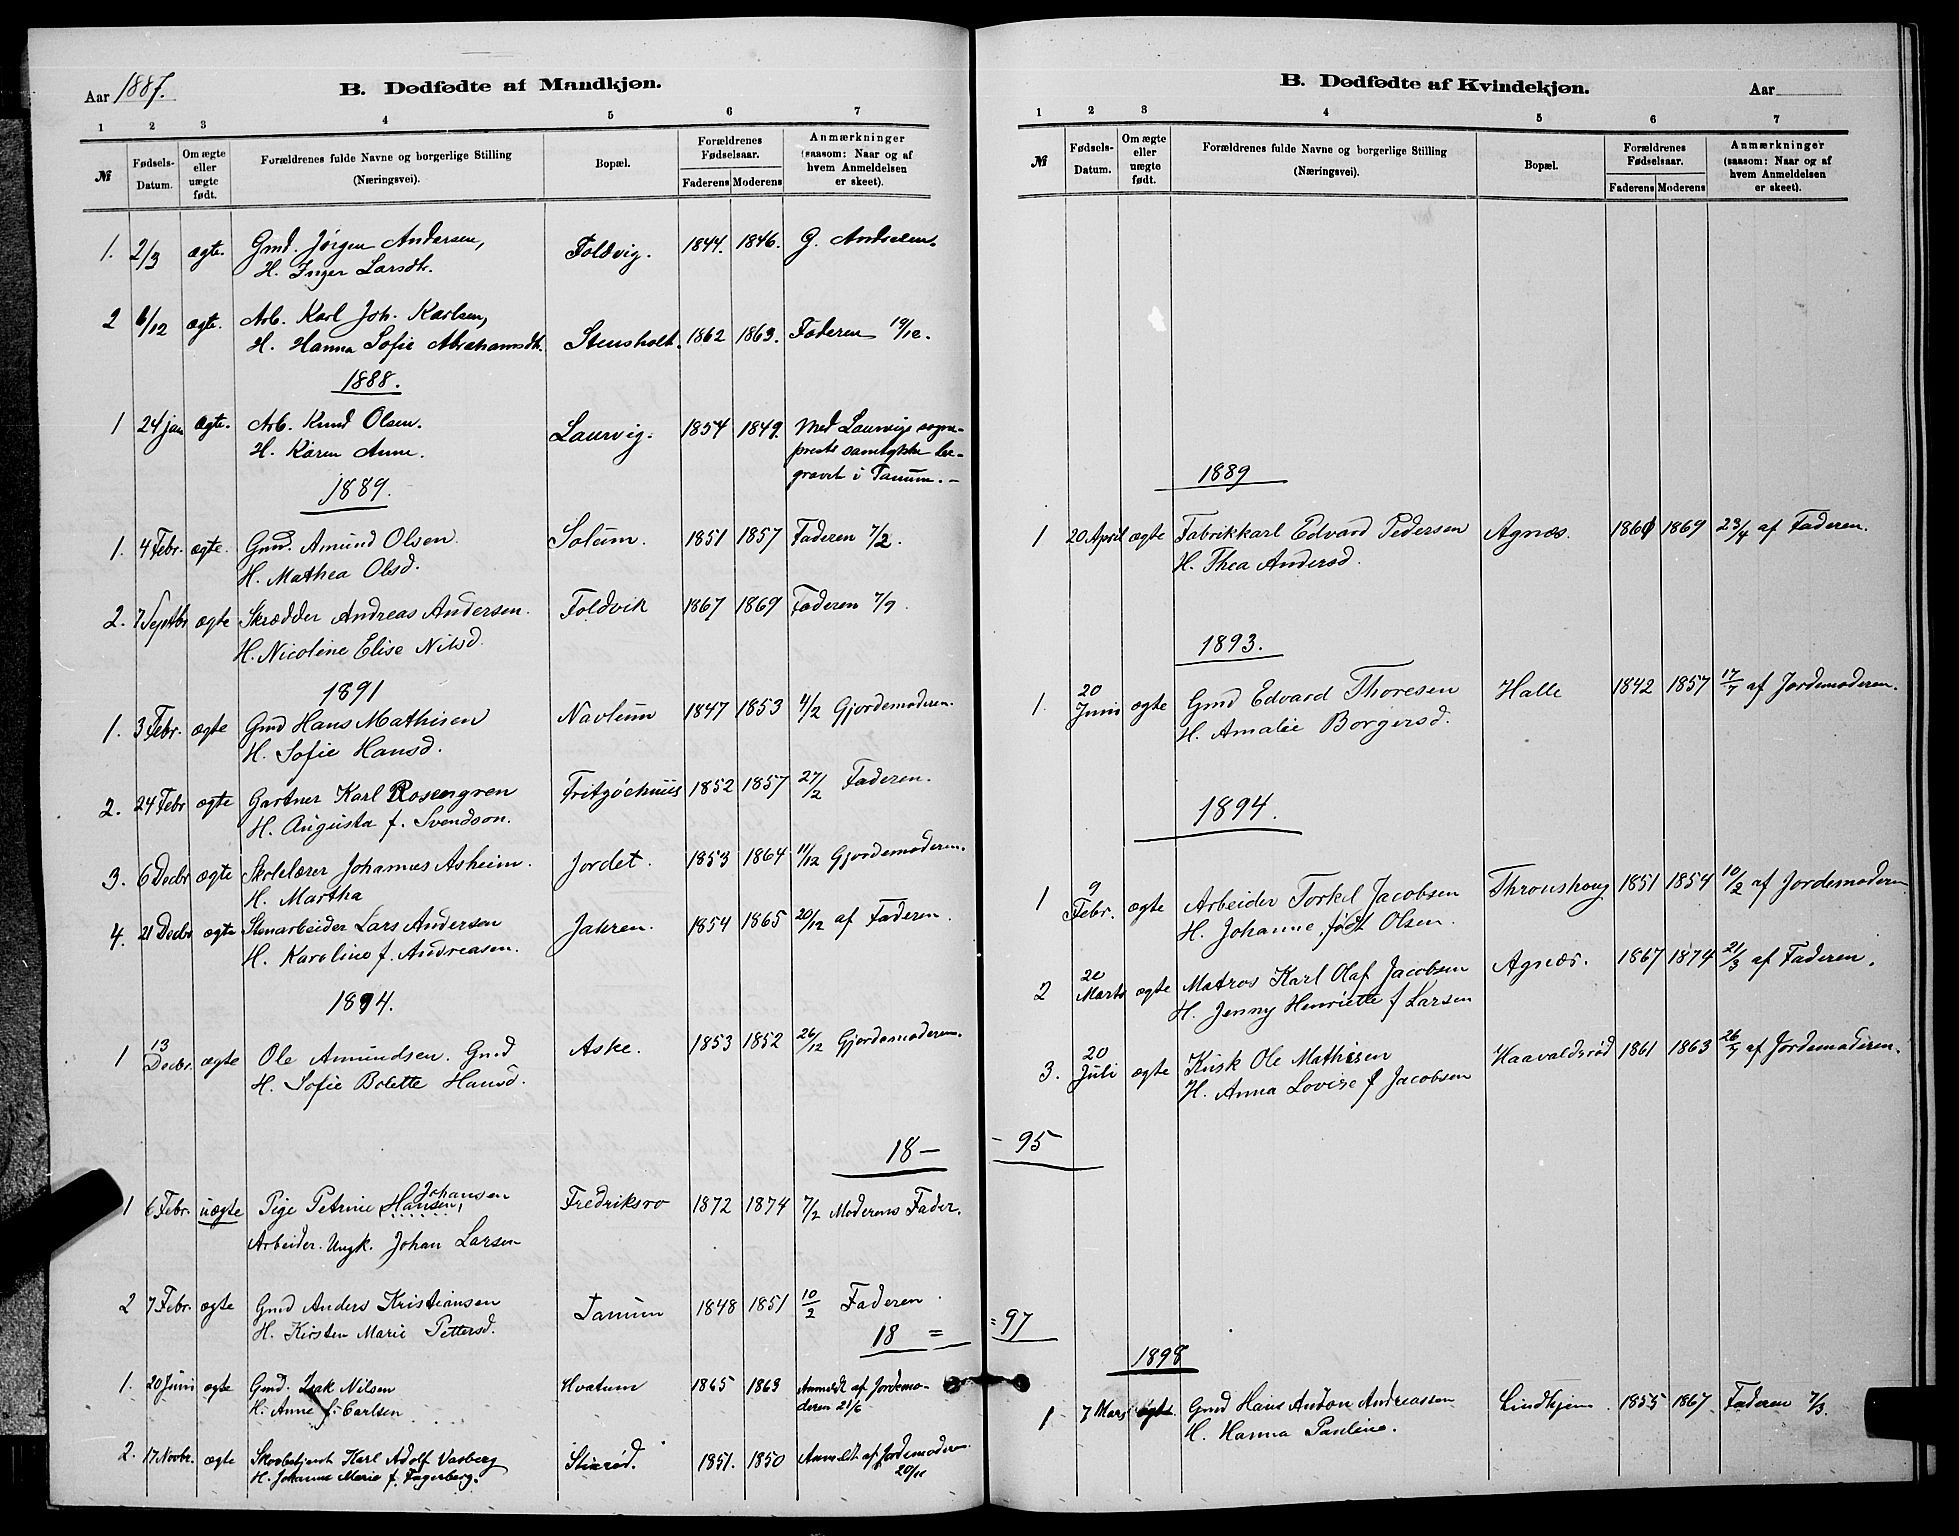 Aar 1887.
B. Dødfødte af Mandkjøn.
1 2 3 4 5 6 7
№
Fødsels-Datum.
Om ægte eller uægte født.
Forældrenes fulde Navne og borgerlige Stilling
(Næringsvei).
Bopæl.
Forældrenes Fødselsaar.
Faderens Moderens
Anmærkninger
(saasom: Naar og af
hvem Anmeldelsen
er skeet).
1. 2/3 ægte. Gmd. Jørgen Andersen, Foldvig. 1844. 1846. G.
H. Inger Larsdtr.
2 6/12 ægte. Arb. Karl Joh. Karlsen,
H. Hanna Sofie Abrahamsdtr. Stensholt. 1862 1863. Faderen 19/12.
1888.
1 24 jan ægte. Arb. Knud Olsen. Laurvig. 1854 1849. Med Laurvigs sogne-
H. Karen Anne. prests samtykke be-
gravet i Tanum. -
1889.
1. 4 Febr. ægte. Gmd. Amund Olsen. Solum. 1851 1857 Faderen 7/2.
H. Mathea Olsd.
2. 7 Septbr ægte Skrædder Andreas Andersen. Foldvik 1867 1869 Faderen 7/9.
H. Nicoline Elise Nilsd.
1891
1. 3 Febr. ægte Gmd Hans Mathisen Navlum 1847 1853 4/2 Gjordemoderen.
H. Sofie Hansd.
2. 24 Febr ægte Gartner Karl Rosengren Fritzøehuus 1852 1857 27/2 Faderen.
H. Augusta f. Svendson.
3. 6 Decbr ægte Skolelærer Johannes Asheim. Jordet. 1853 1864 11/12 Gjordemoderen.
H. Martha
4. 21 Decbr ægte Stenarbeider Lars Andersen Jahren. 1854 1865 20/12 af Faderen.
H. Karoline f. Andreasen.
1894.
1 13 Decbr. ægte Ole Amundsen. Gmd Aske. 1853 1852 26/12 Gjordemoderen.
H. Sofie Bolette Hansd.
18 —
1 6 Febr. uægte Pige Petrine Hansen, Johansen Fredriksro 1872 1874 7/2 Moderens Fader.
Arbeider. Ungk. Johan Larsen
2 7 Febr. ægte Gmd Anders Kristiansen Tanum 1848 1851 10/2 Faderen.
H. Kirsten Marie Pettersd.
18 =
1. 20 Juni ægte Gmd. Isak Nilsen Hvatum 1865 1863 Anmeldt af Jordemo-
H. Anne f. Carlsen deren 21/6
2. 17 Novbr. ægte Skovbetjent Karl Adolf Vasberg Stinrød. 1851. 1850 Anmeldt af Jordemoderen
H. Johanne Marie f. Fagerberg. 20/11
B. Dødfødte af Kvindekjøn.
Aar
1 2 3 4 5 6 7
№
Fødsels-Datum.
Om ægte eller uægte født.
Forældrenes fulde Navne og borgerlige Stilling
(Næringsvei).
Bopæl.
Forældrenes Fødselsaar.
Faderens Moderens
Anmærkninger
(saasom: Naar og af
hvem Anmeldelsen
er skeet).
1889
1 20 April ægte Fabrikkarl Edvard Pedersen Agnæs. 1869 23/4 af Faderen.
H. Thea Andersd.
1893.
1. 20 Juni ægte Gmd Edvard Thoresen Halle 1842 1857 17/7 af Jordemoderen.
H. Amalie Borgersd.
1894.
1 9 Febr. ægte Arbeider Torkel Jacobsen Thronshoug 1851 1854 10/2 af Jordemoderen
H. Johanne, født Olsen.
2 20 Marts ægte Matros Karl Olaf Jacobsen Agnæs. 1867 1874 21/3 af Faderen.
H. Jenny Henriette f Larsen
3. 20 Juli ægte Kusk Ole Mathisen Haavaldsrød 1861 1863 26/7 af Jordemoderen.
H. Anna Lovise f Jacobsen
- 95
= 97
1898
1 7 Mars ægte Gmd Hans Anton Andreassen Lindhjem. 1855 1867 Faderen 7/3.
H. Hanna Pauline.